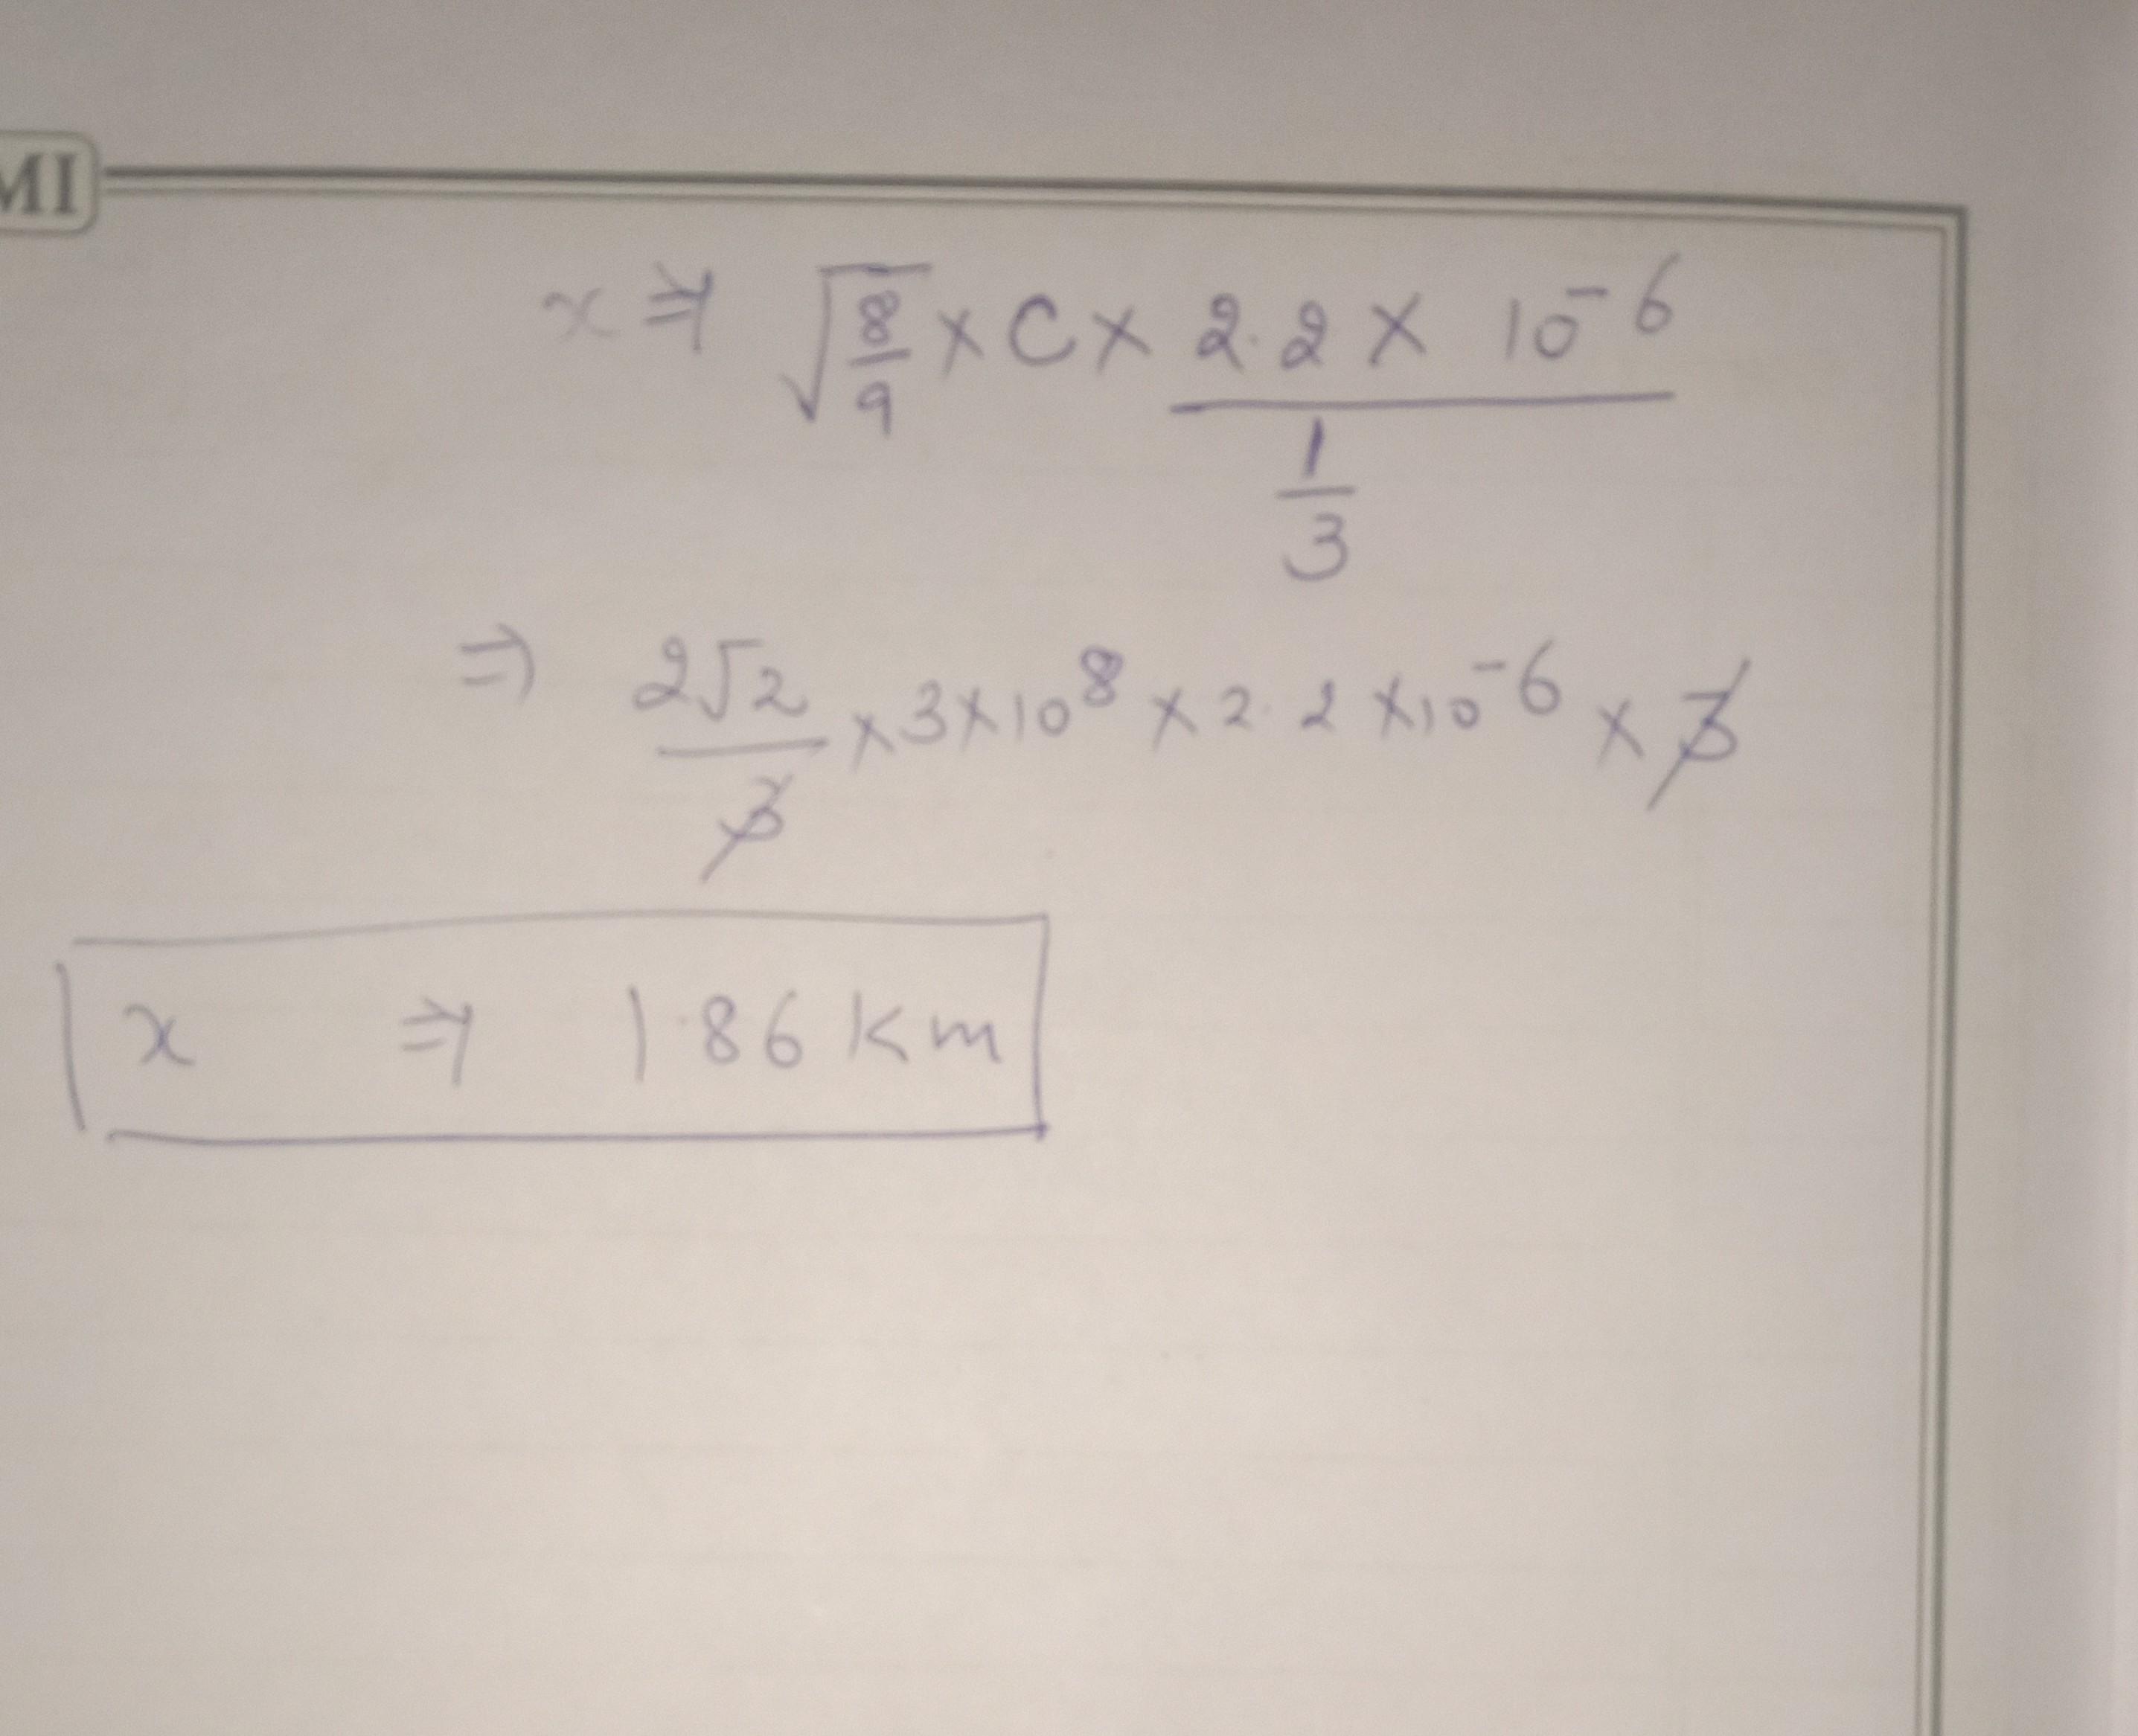 MI
x ⇒ √(8/9) × C × (2.2 × 10⁻⁶)/(1/3)
⇒ 2√2/3 × 3×10⁸ × 2.2 ×10⁻⁶ × 3
x ⇒ 1.86 Km